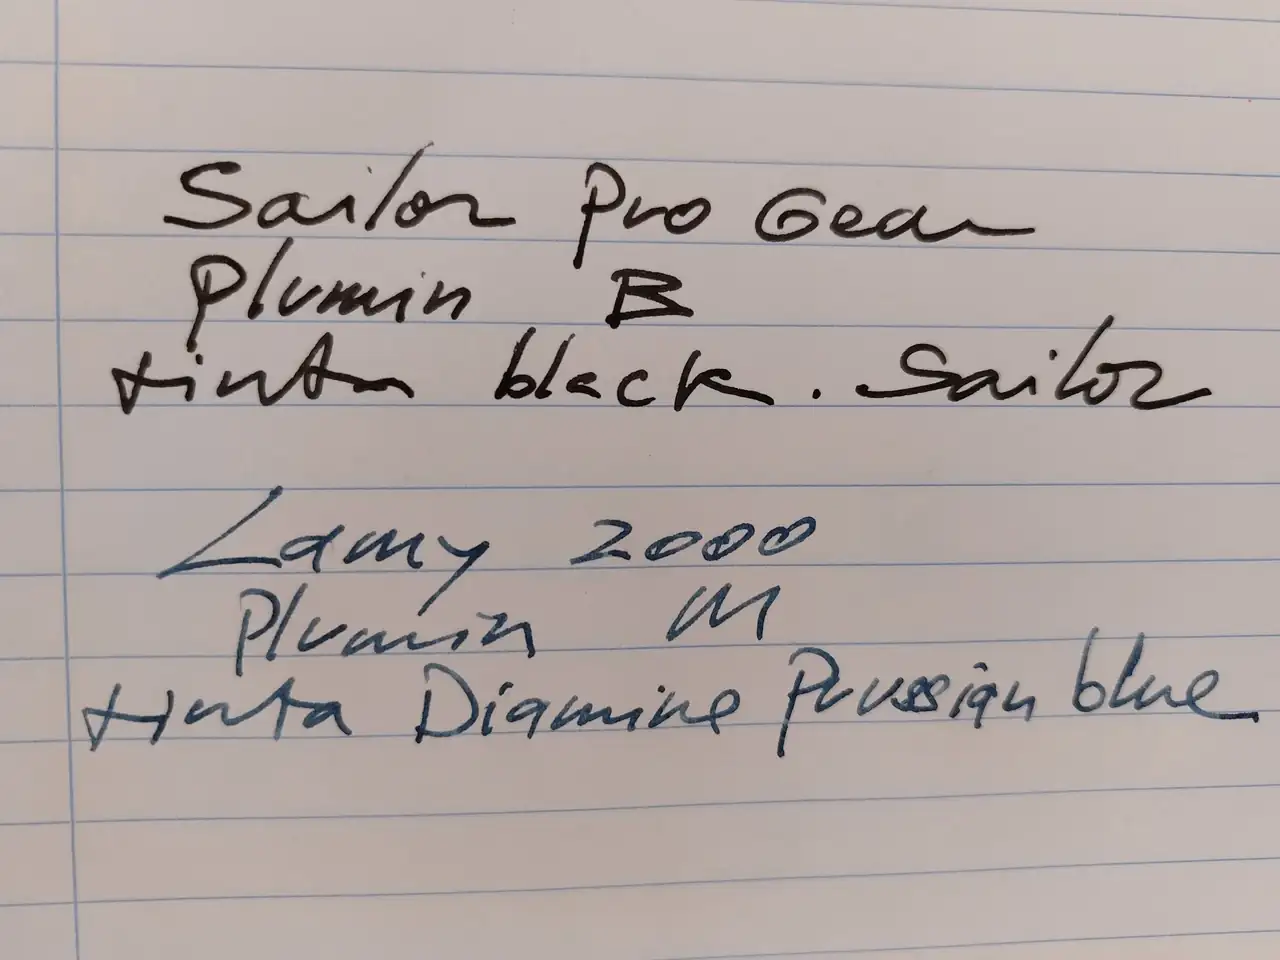 Sailor Pro Gear
Plumin B
tinta black. Sailor
Lamy 2000
Plumin M
tinta Diamine Prussian blue